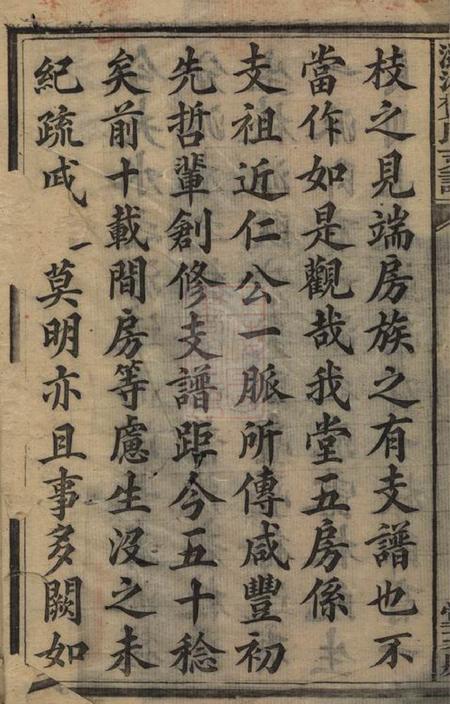 枝之見端房族之有支譜也不
當作如是觀哉我堂五房係
支祖近仁公一脈所傳咸豐初
先哲輩創修支譜距今五十稔
矣前十載間房等慮生沒之未
紀疏戚 莫明亦且事多闕如